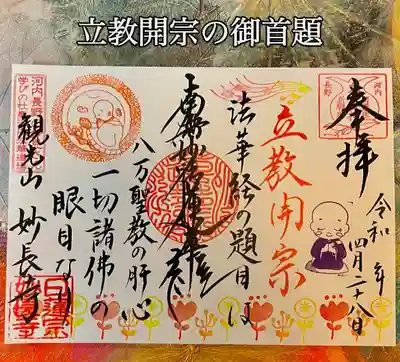 立教開宗の御首題
奉拝
令和 年
四月二十八日
河内
長野
立教開宗
法華経の題目は
南無妙法蓮華経
八万聖教の肝心
一切諸佛の
眼目なり
河内長野
觀光山 妙長寺
日蓮宗
妙長寺